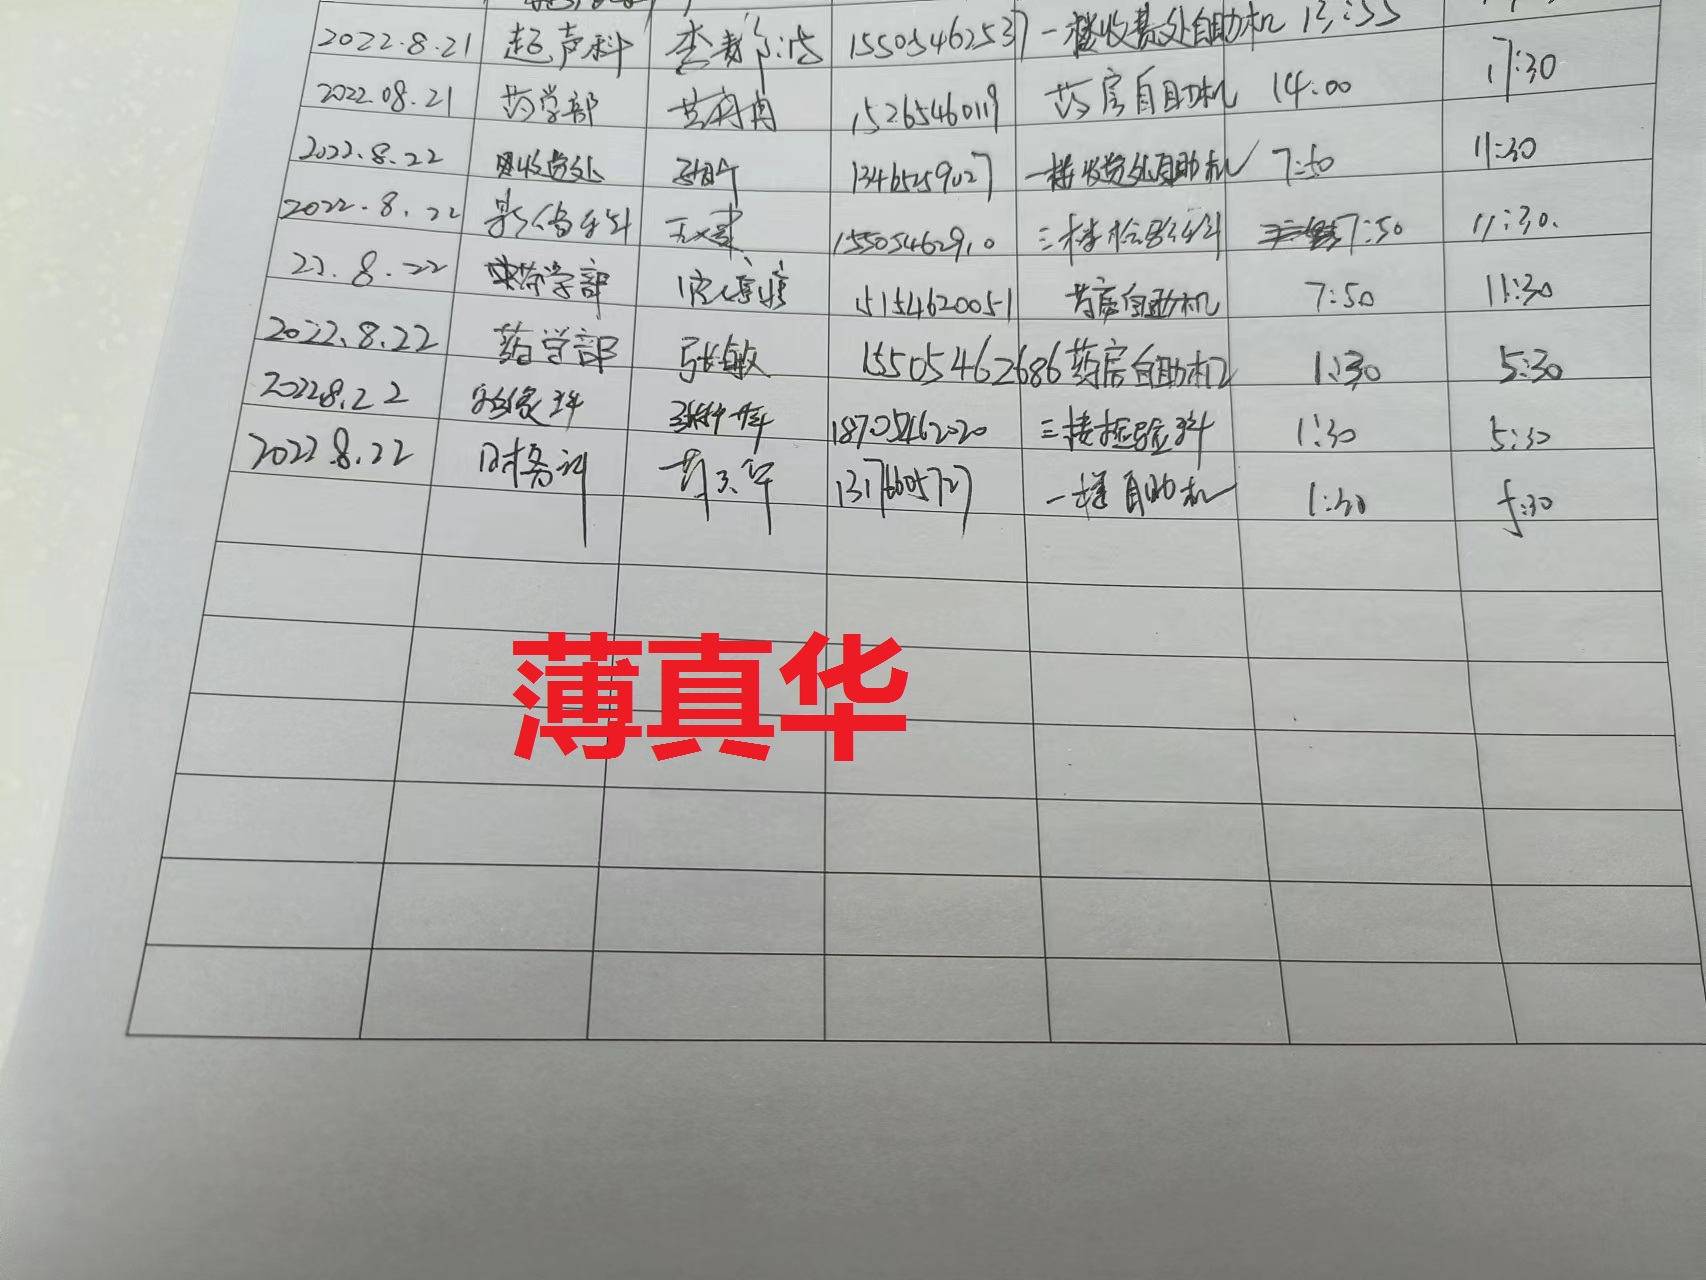 2022.8.21 超声科 15505462537 一楼收费处自助机 13:55
2022.08.21 药学部 15265460119 药房自助机 14:00 17:30
2022.8.22 收费处 13465259027 一楼收费处自助机 7:50 11:30
2022.8.22 影像科 15505462910 三楼检验科 7:50 11:30.
22.8.22 药学部 15154620051 药房自助机 7:50 11:30
2022.8.22 药学部 张敏 15505462686 药房自助机 1:30 5:30
2022.8.22 18705462020 三楼检验科 1:30 5:30
2022.8.22 财务科 13176605727 一楼自助机 1:30 5:30
薄真华